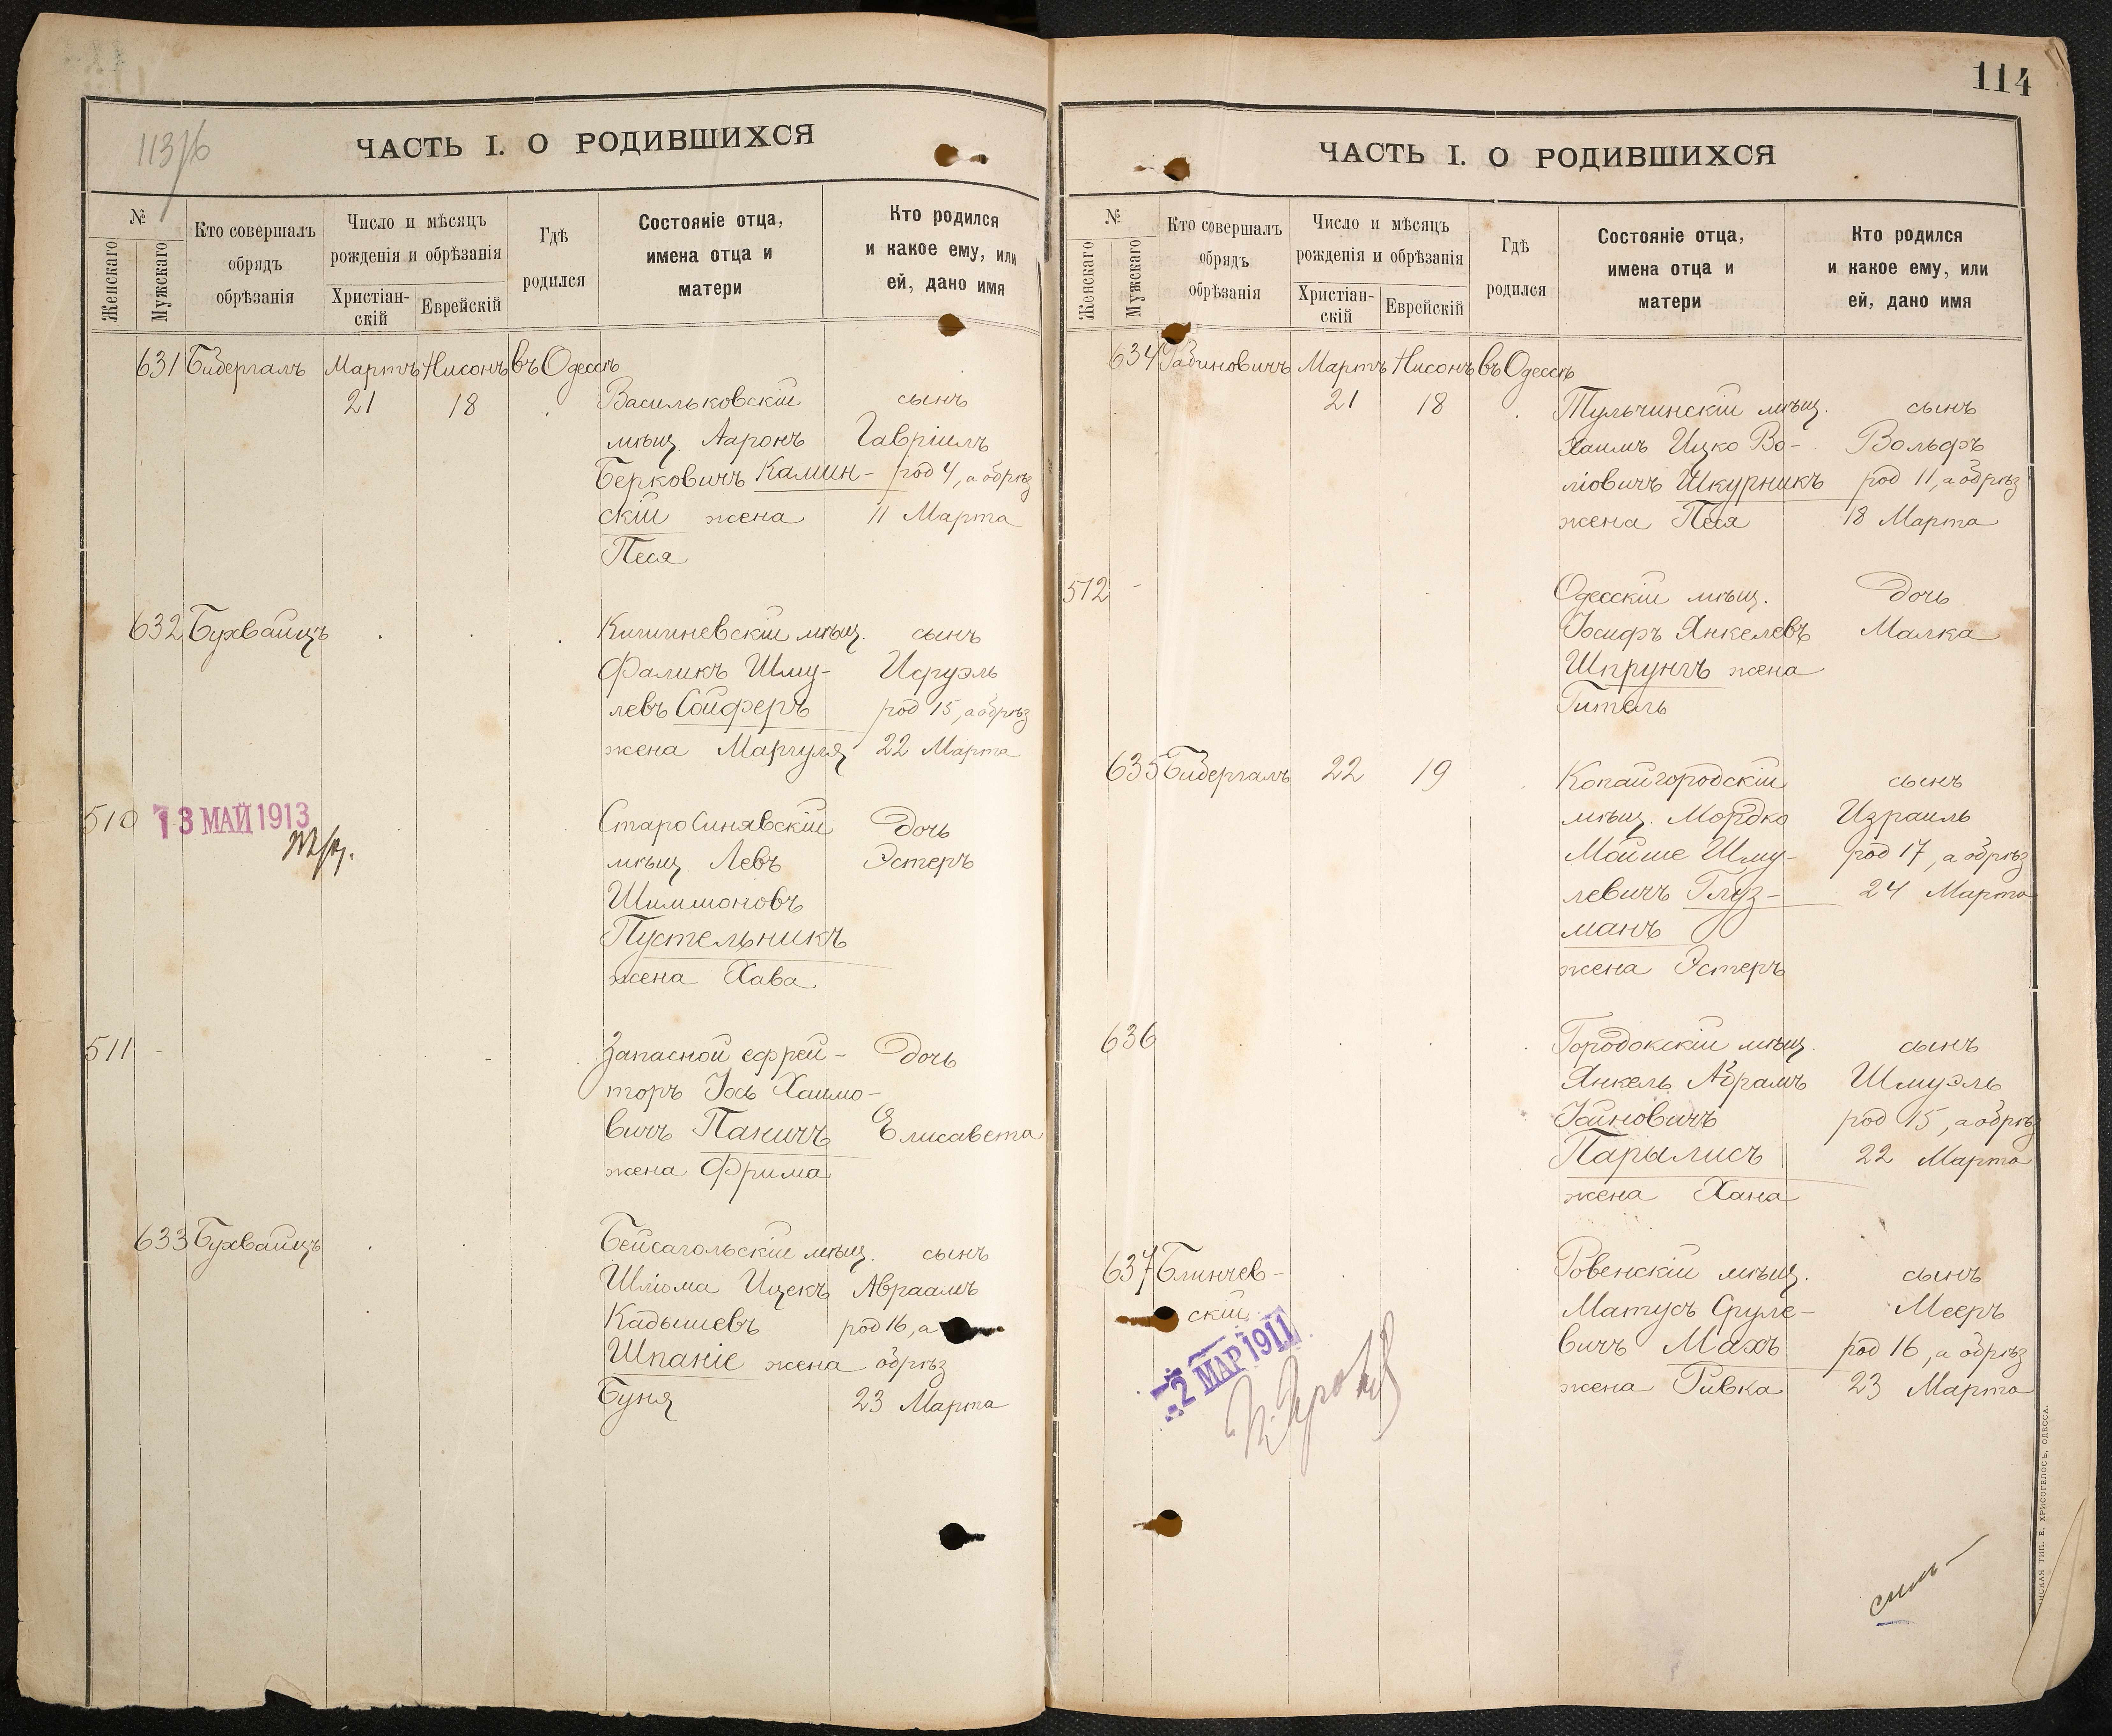 113/б
ЧАСТЬ I. О РОДИВШИХСЯ
№
Женскаго
Мужскаго
Кто совершалъ
обрядъ
обрѣзанія
Число и мѣсяцъ
рожденія и обрѣзанія
Христіан-
скій
Еврейскій
Гдѣ
родился
Состояніе отца,
имена отца и
матери
Кто родился
и какое ему, или
ей, дано имя
631 Бибергалъ Мартъ Нисонъ въ Одессѣ
21 18 Васильковскій сынъ
мѣщ. Ааронъ Гавріилъ
Берковичъ Камин- род 4, а обрѣз
скій жена 11 Марта
Песя
632 Бухвайцъ Кишиневскій мѣщ. сынъ
Фаликъ Шму- Исруэль
левъ Сойферъ род 15, а обрѣз
жена Маргуля 22 Марта
510 13 МАЙ 1913 Старо Синявскій дочь
мѣщ. Левъ Эстеръ
Шимшоновъ
Пустельникъ
жена Хава
511 Запасной ефрей- дочь
торъ Іось Хаимо-
вичъ Паничъ Елисавета
жена Фрима
633 Бухвайцъ Бейсагольскій мѣщ. сынъ
Шліома Ицекъ Авраамъ
Кадышевъ род 16, а
Шпаніе жена обрѣз
Буня 23 Марта
114
ЧАСТЬ I. О РОДИВШИХСЯ
№
Женскаго
Мужскаго
Кто совершалъ
обрядъ
обрѣзанія
Число и мѣсяцъ
рожденія и обрѣзанія
Христіан-
скій
Еврейскій
Гдѣ
родился
Состояніе отца,
имена отца и
матери
Кто родился
и какое ему, или
ей, дано имя
634 Рабиновичъ Мартъ Нисонъ въ Одессѣ
21 18 Тульчинскій мѣщ. сынъ
Хаимъ Ицко Во- Вольфъ
ліовичъ Шкурникъ род 11, а обрѣз
жена Песя 18 Марта
512 - Одесскій мѣщ. дочь
Іосифъ Янкелевъ Малка
Шпрунгъ жена
Гитель
635 Бибергалъ 22 19 Копайгородскій сынъ
мѣщ. Мордко Израиль
Мойше Шму- род 17, а обрѣз
левичъ Глуз- 24 Марта
манъ
жена Эстеръ
636 Городокскій мѣщ. сынъ
Янкель Абрамъ Шмуэль
Іойновичъ род 15, а обрѣз
Парылисъ 22 Марта
жена Хана
637 Блинчев- Ровенскій мѣщ. сынъ
скій Матусъ Сруле- Мееръ
-2 МАР 1911 вичъ Махъ род 16, а обрѣз
жена Ривка 23 Марта
НСКАЯ ТИП. Е. ХРИСОГЕЛОСЪ, ОДЕССА.